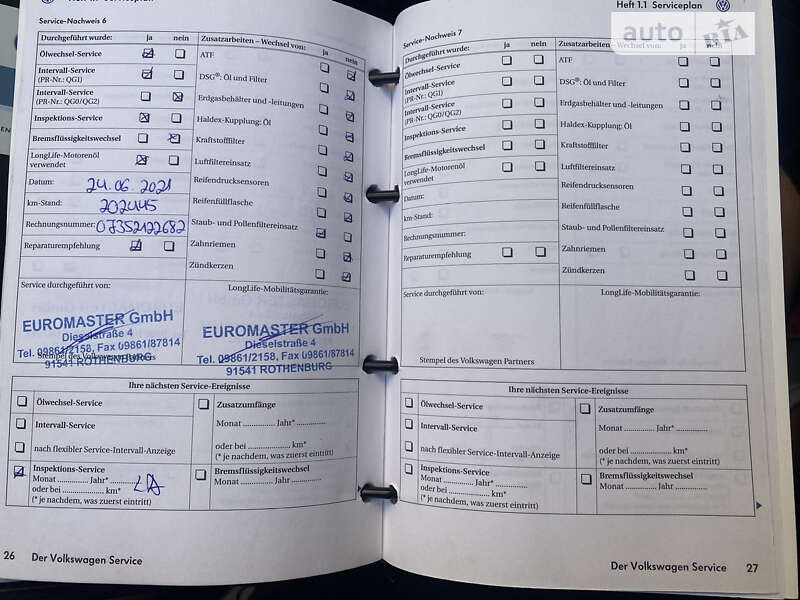 Service-Nachweis 6
Durchgeführt wurde: ja nein
Ölwechsel-Service
Intervall-Service
(PR-Nr.: QG1)
Intervall-Service
(PR-Nr.: QG0/QG2)
Inspektions-Service
Bremsflüssigkeitswechsel
LongLife-Motorenöl
verwendet
Datum: 24.06.2021
km-Stand: 202445
Rechnungsnummer: 07352122682
Reparaturempfehlung
Zusatzarbeiten – Wechsel von: ja nein
ATF
DSG®: Öl und Filter
Erdgasbehälter und -leitungen
Haldex-Kupplung: Öl
Kraftstofffilter
Luftfiltereinsatz
Reifendrucksensoren
Reifenfüllflasche
Staub- und Pollenfiltereinsatz
Zahnriemen
Zündkerzen
Service durchgeführt von:
LongLife-Mobilitätsgarantie:
EUROMASTER GmbH
Dieselstraße 4
Tel. 09861/2158, Fax 09861/87814
91541 ROTHENBURG
Stempel des Volkswagen Partners
EUROMASTER GmbH
Dieselstraße 4
Tel. 09861/2158, Fax 09861/87814
91541 ROTHENBURG
Ihre nächsten Service-Ereignisse
Ölwechsel-Service
Intervall-Service
nach flexibler Service-Intervall-Anzeige
Inspektions-Service
Monat ............. Jahr* .............
oder bei ................. km*
(* je nachdem, was zuerst eintritt)
Zusatzumfänge
Monat ................. Jahr* ..............
oder bei ................. km*
(* je nachdem, was zuerst eintritt)
Bremsflüssigkeitswechsel
Monat ............. Jahr ..............
26 Der Volkswagen Service
Heft 1.1 Serviceplan
auto RIA
Service-Nachweis 7
Durchgeführt wurde: ja nein
Ölwechsel-Service
Intervall-Service
(PR-Nr.: QG1)
Intervall-Service
(PR-Nr.: QG0/QG2)
Inspektions-Service
Bremsflüssigkeitswechsel
LongLife-Motorenöl
verwendet
Datum:
km-Stand:
Rechnungsnummer:
Reparaturempfehlung
Zusatzarbeiten – Wechsel von: ja nein
ATF
DSG®: Öl und Filter
Erdgasbehälter und -leitungen
Haldex-Kupplung: Öl
Kraftstofffilter
Luftfiltereinsatz
Reifendrucksensoren
Reifenfüllflasche
Staub- und Pollenfiltereinsatz
Zahnriemen
Zündkerzen
Service durchgeführt von:
LongLife-Mobilitätsgarantie:
Stempel des Volkswagen Partners
Ihre nächsten Service-Ereignisse
Ölwechsel-Service
Intervall-Service
nach flexibler Service-Intervall-Anzeige
Inspektions-Service
Monat ............. Jahr* .............
oder bei ................. km*
(* je nachdem, was zuerst eintritt)
Zusatzumfänge
Monat ................. Jahr* ..............
oder bei ................. km*
(* je nachdem, was zuerst eintritt)
Bremsflüssigkeitswechsel
Monat ............. Jahr ..............
Der Volkswagen Service 27